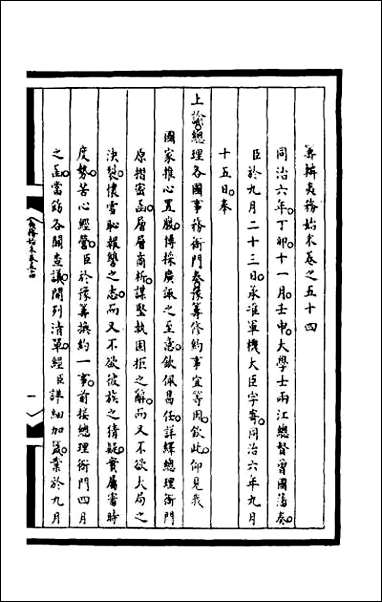 籌辦夷務始末卷之五十四
同治六年丁卯十一月壬申大學士兩江總督曾國藩奏
臣於九月二十三日承准軍機大臣字寄同治六年九月
十五日奉
上諭總理各國事務衙門奏豫籌修約事宜等因欽此仰見我
國家推心置腹博採廣諏之至意欽佩曷任詳繹總理衙門
原摺密函層層商析謀堅執固拒之辭而又不欲大局之
決裂懷雪恥報讐之志而又不欲彼族之猜疑實屬審時
度勢苦心經營臣於豫籌換約一事前接總理衙門四月
之函當飭各關查議開列清單經臣詳細加簽業於九月
夷務始末卷五十四
一